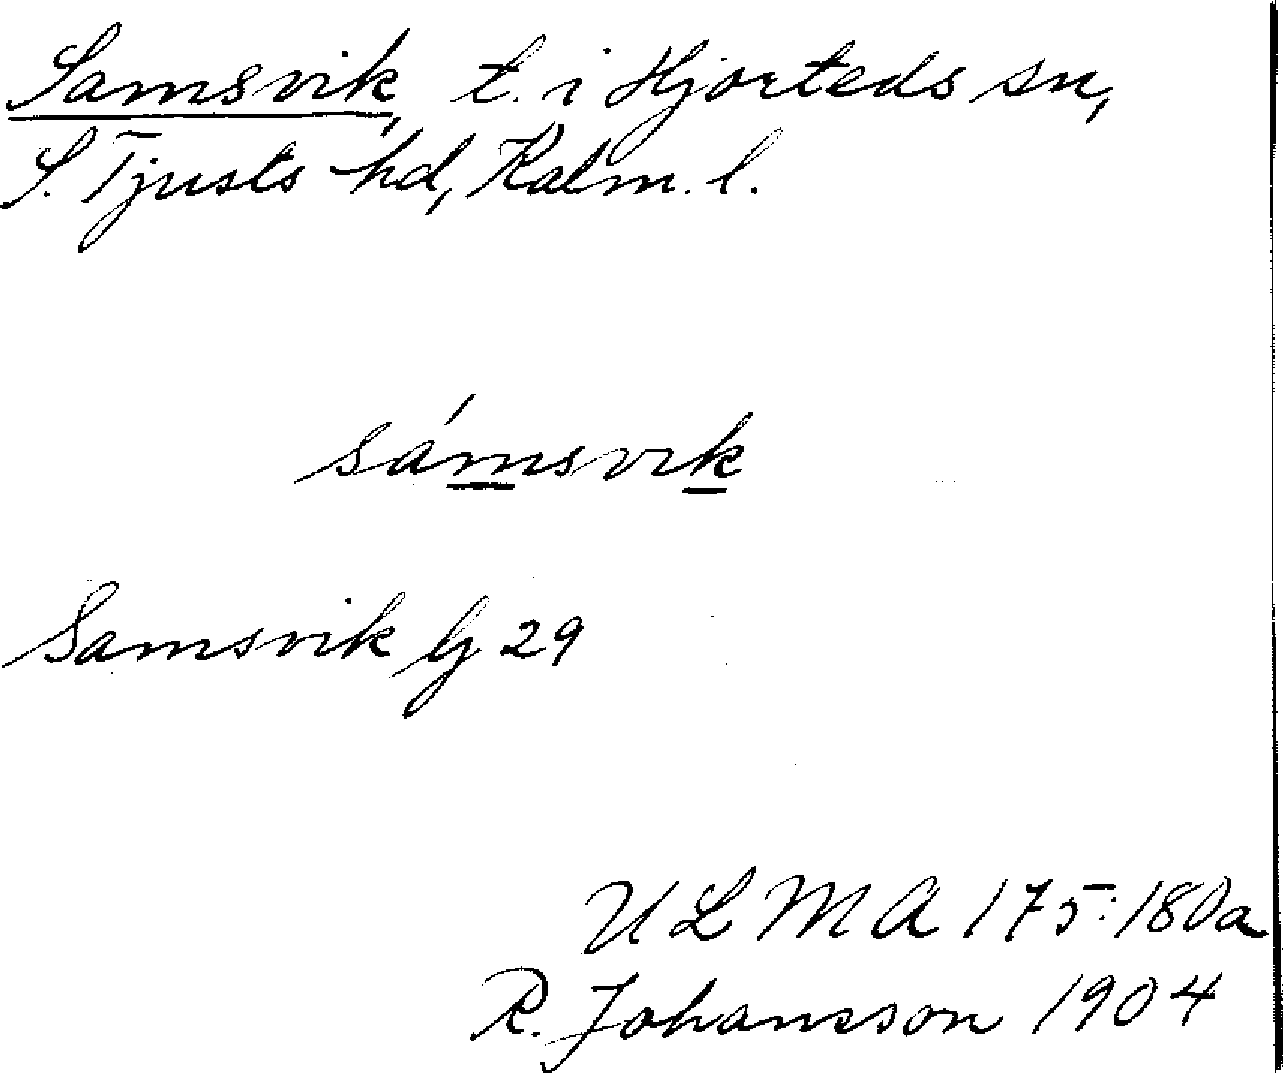 Samsvik, t. i Hjorteds sn,
S. Tjusts hd, Kalm. l.
sámsvik
Samsvik lj 29
ULMA 175:180a
R. Johansson 1904